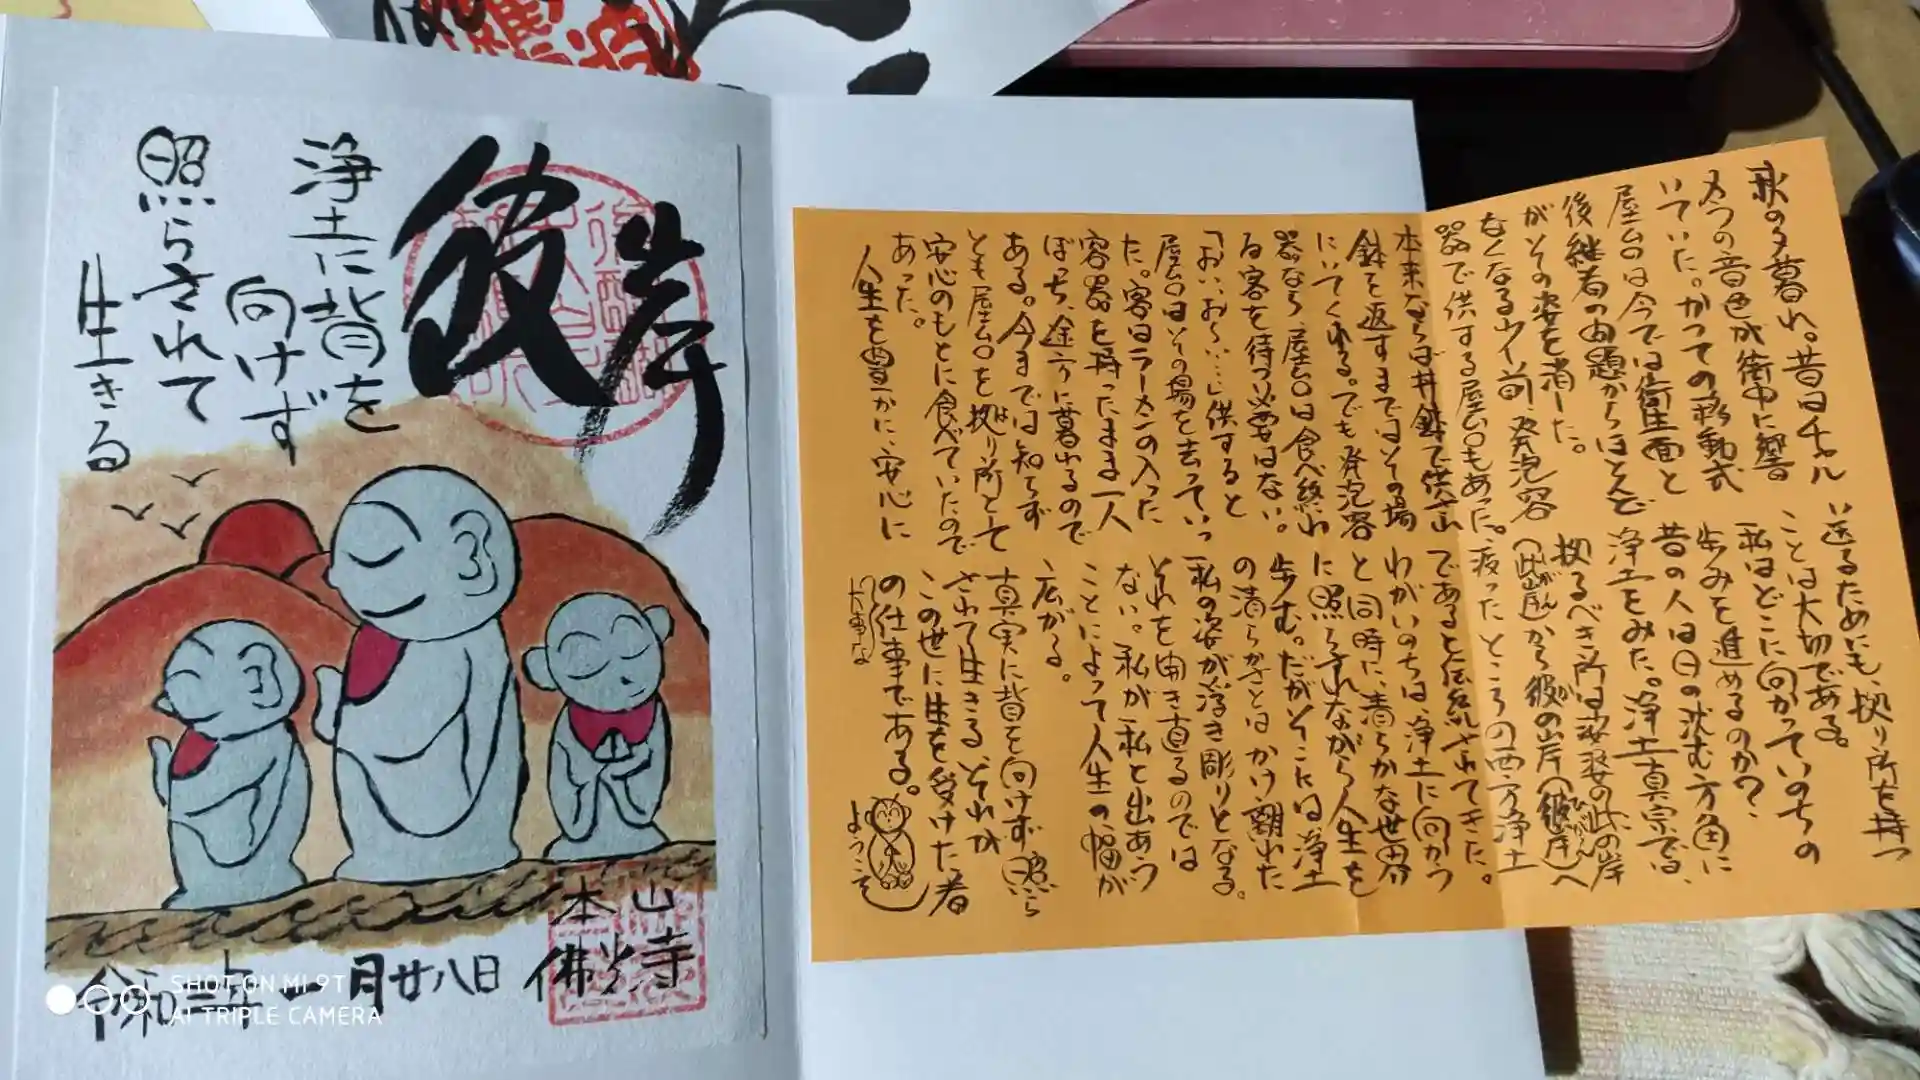 彼岸
浄土に背を
向けず
照らされて
生きる
本山
佛光寺
令和三年一月廿八日
秋の夕暮れ。昔はチャル
メラの音色が街中に響
いていた。かつての移動式
屋台は今では衛生面と
後継者の問題からほとんど
がその姿を消した。
なくなる少し前、発泡容
器で供する屋台もあった。
本来ならば丼鉢で供され
鉢を返すまではその場
にいてくれる。でも発泡容
器なら屋台は食べ終わ
る客を待つ必要はない。
「おい、お〜……」供すると
屋台はその場を去ってい
た。客はラーメンの入った
容器を持ったまま一人
ぼっち、途方に暮れるので
ある。今までは知らず
とも屋台を拠り所として
安心のもとに食べていたので
あった。
人生を豊かに、安心に
送るためにも、拠り所を持つ
ことは大切である。
私はどこに向かっていのちの
歩みを進めるのか?
昔の人は日の沈む方角に
浄土をみた。浄土真宗では、
拠るべき所は娑婆の此の岸
(此岸)から彼の岸(彼岸)へ
渡ったところの西方浄土
であると伝承されてきた。
わがいのちは浄土に向かう
と同時に、清らかな世界
に照らされながら人生を
歩む。だがそこには浄土
の清らかさとはかけ離れた
私の姿が浮き彫りとなる。
それを聞き直るのでは
ない。私が私と出あう
ことによって人生の幅が
広がる。
真実に背を向けず照ら
されて生きる、それが
この世に生を受けた者
の仕事である。
大事な
ようこそ
SHOT ON MI 9T
AI TRIPLE CAMERA